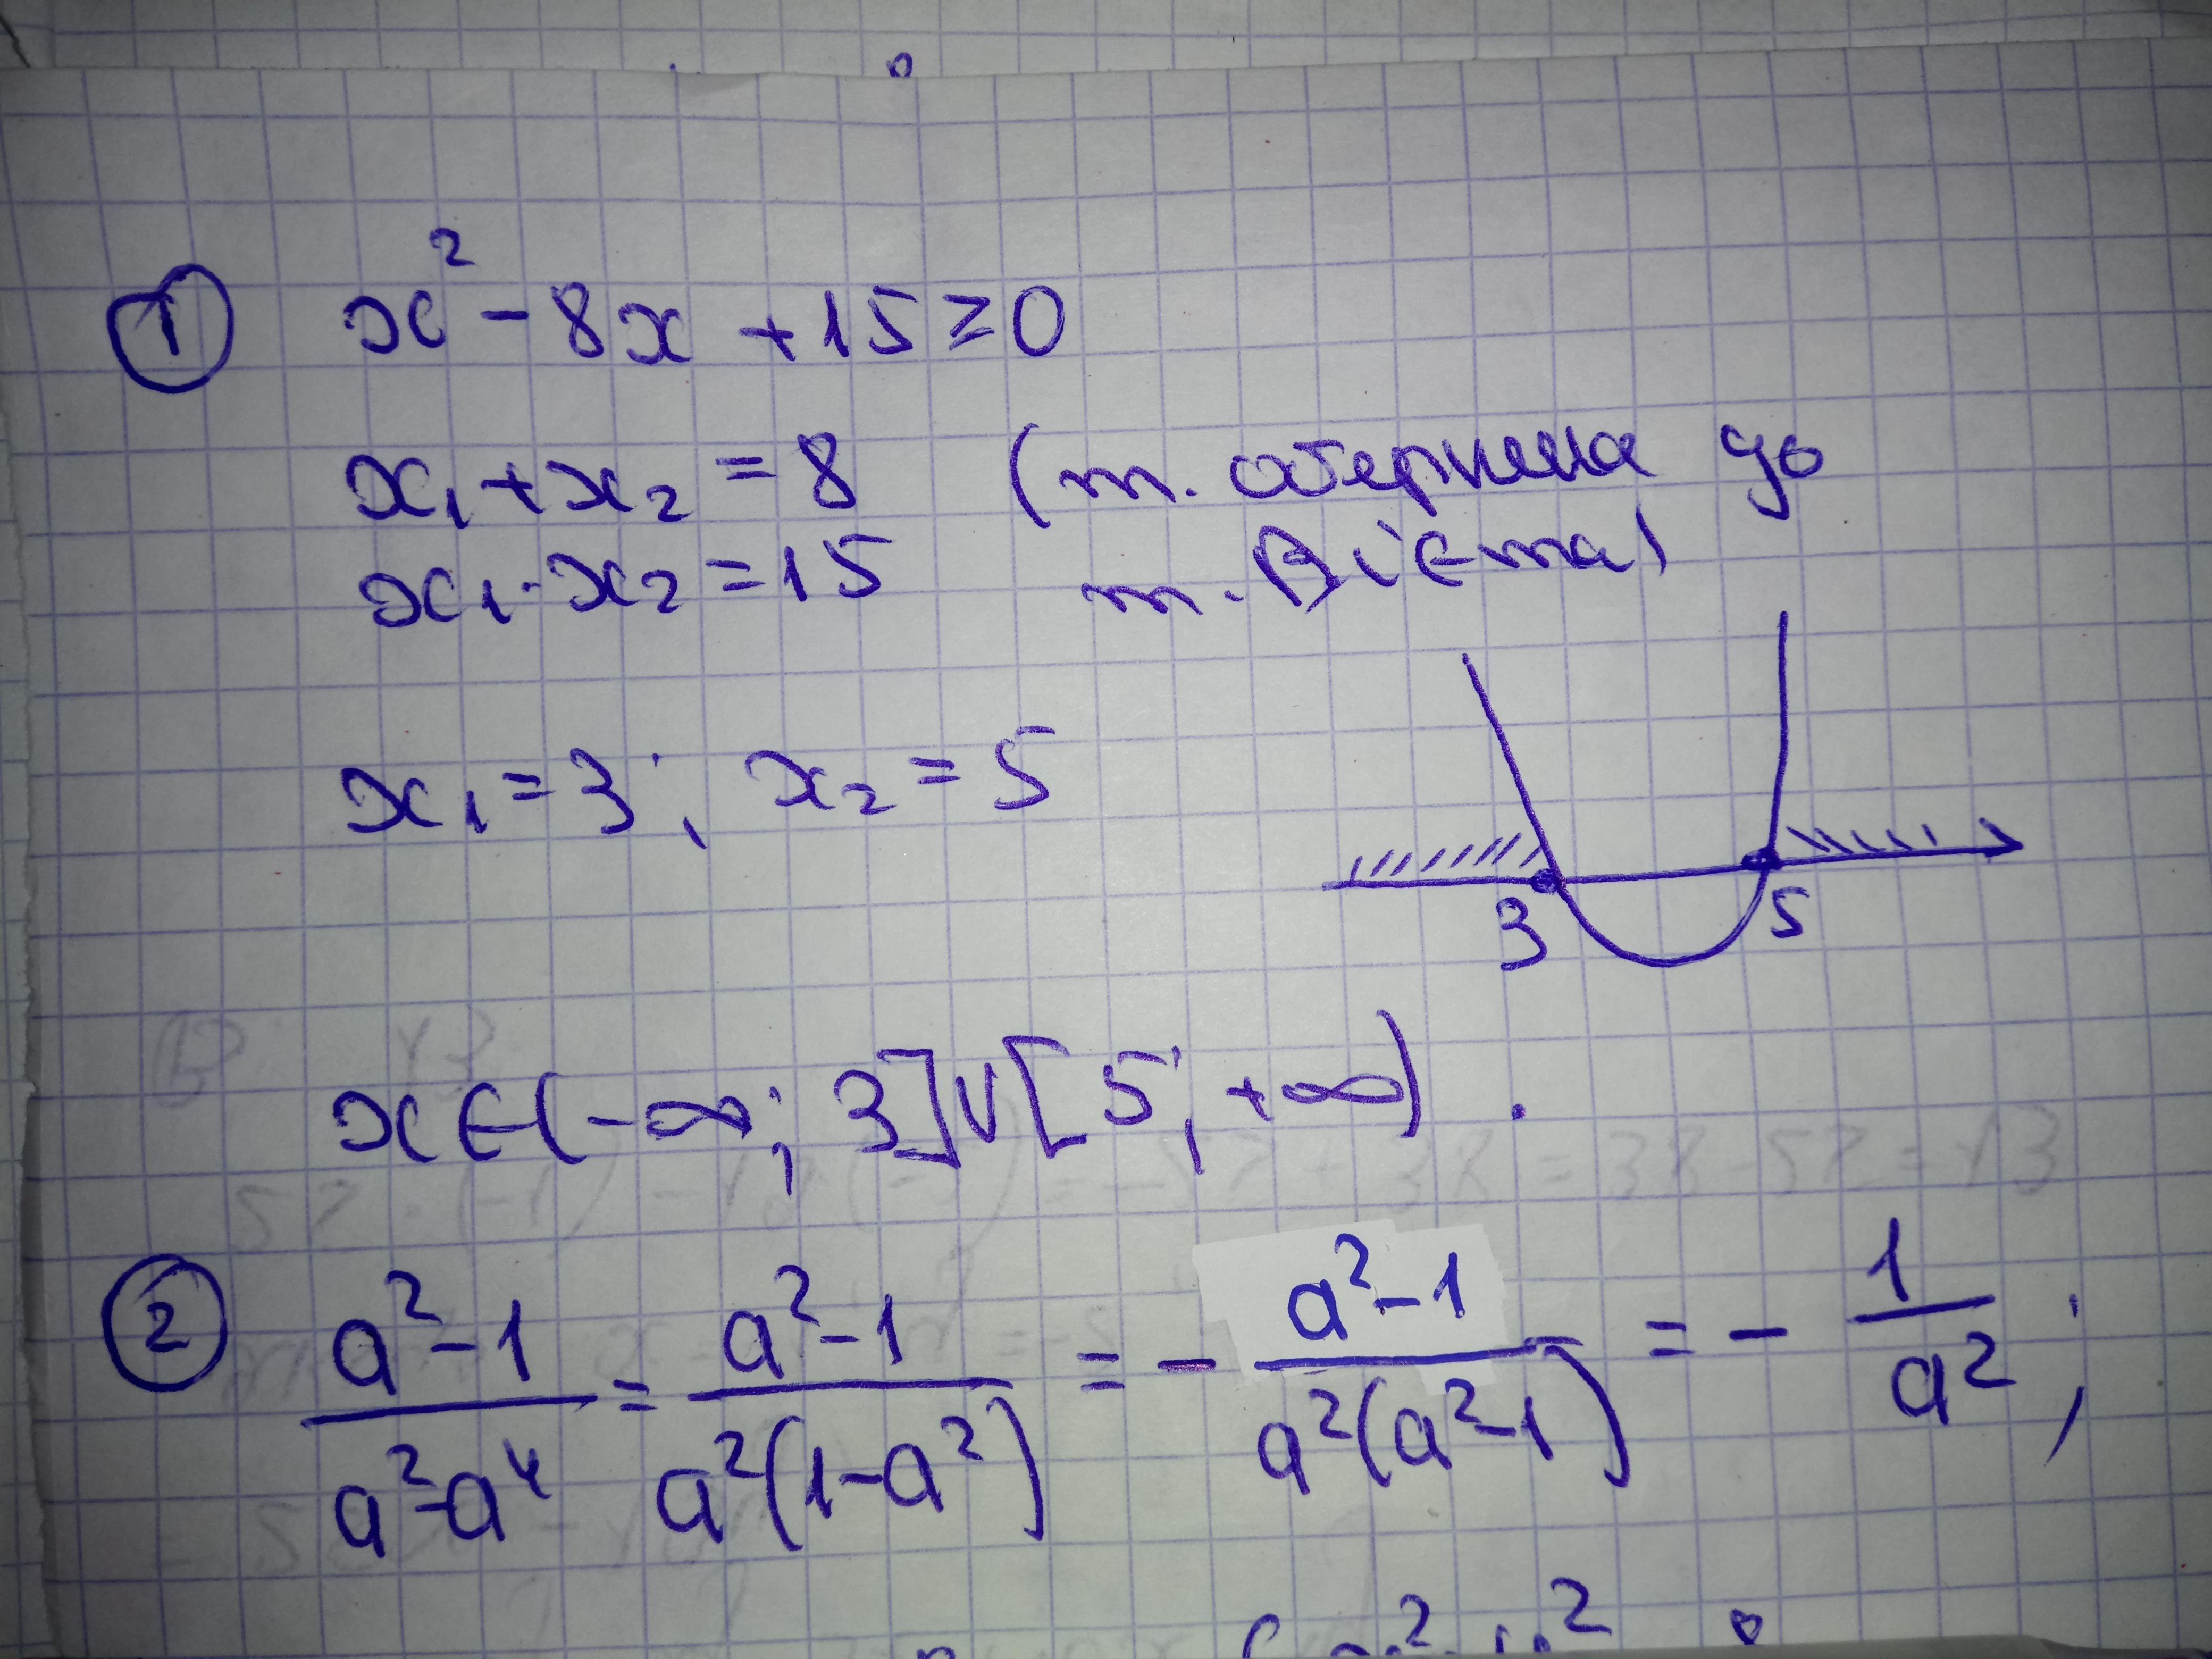 ① x² - 8x + 15 ≥ 0
x₁ + x₂ = 8 (т. обернена до
x₁ · x₂ = 15 т. Вієта)
x₁ = 3; x₂ = 5
3 5
x ∈ (-∞; 3] ∪ [5; +∞).
② (a² - 1)/(a² - a⁴) = (a² - 1)/(a²(1 - a²)) = - (a² - 1)/(a²(a² - 1)) = - 1/a²;